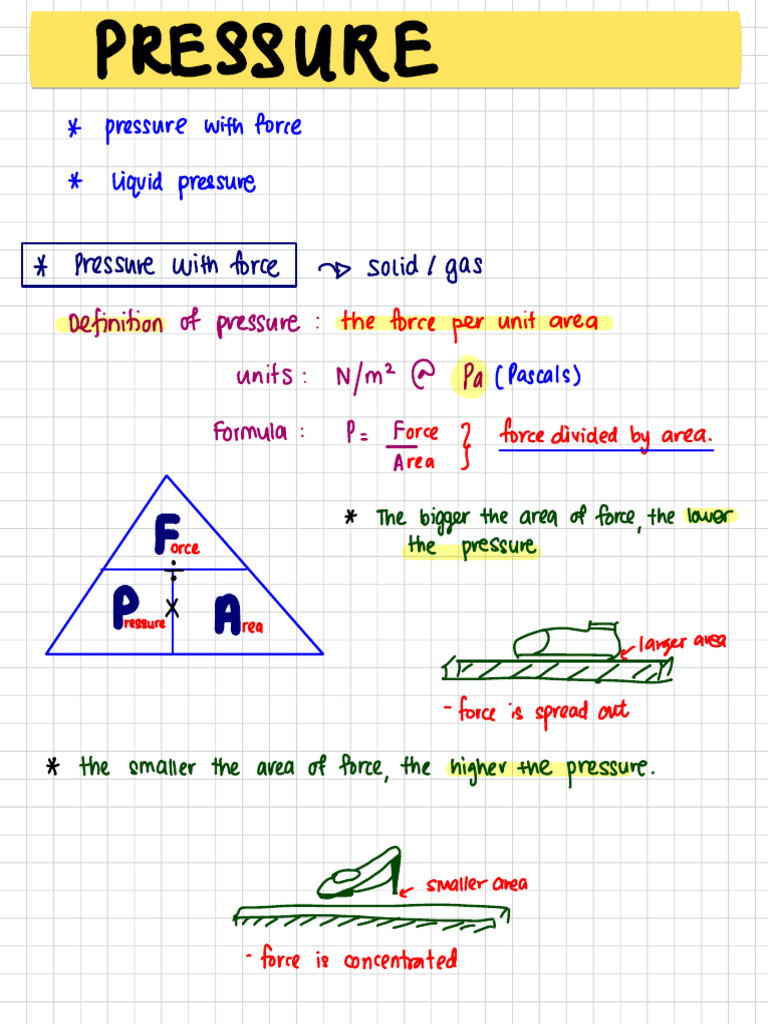 PRESSURE
* pressure with force
* liquid pressure
* Pressure with force → solid / gas
Definition of pressure : the force per unit area
units : N/m² @ Pa (Pascals)
Formula : P = Force / Area } force divided by area.
* The bigger the area of force, the lower
the pressure
Force
÷
Pressure × Area
larger area
- force is spread out
* the smaller the area of force, the higher the pressure.
smaller area
- force is concentrated